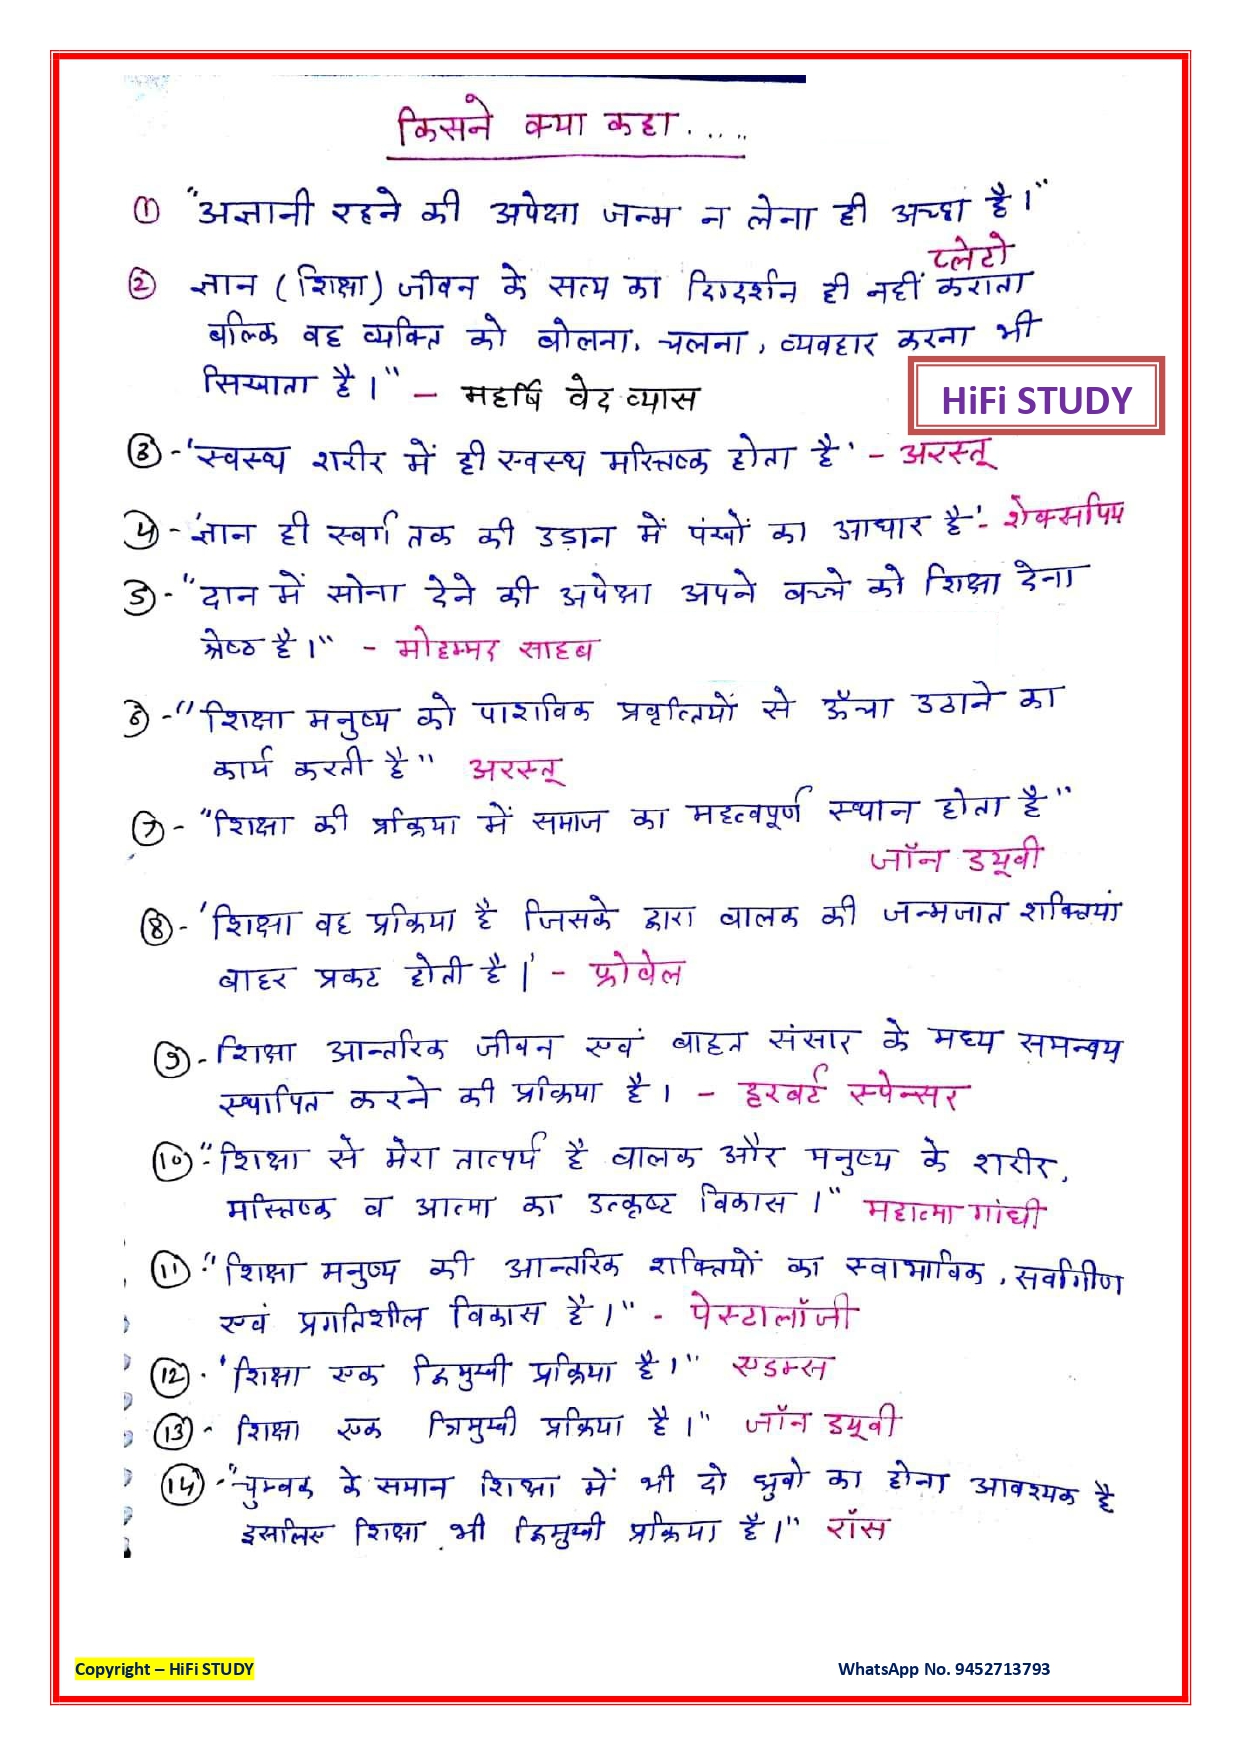 किसने क्या कहा.....
① "अज्ञानी रहने की अपेक्षा जन्म न लेना ही अच्छा है।"
प्लेटो
② ज्ञान (शिक्षा) जीवन के सत्य का दिग्दर्शन ही नहीं कराता
बल्कि वह व्यक्ति को बोलना, चलना, व्यवहार करना भी
सिखाता है।" - महर्षि वेद व्यास
HiFi STUDY
③ - 'स्वस्थ शरीर में ही स्वस्थ मस्तिष्क होता है' - अरस्तू
④ - 'ज्ञान ही स्वर्ग तक की उड़ान में पंखों का आधार है' - शेक्सपियर
⑤ - "दान में सोना देने की अपेक्षा अपने बच्चे को शिक्षा देना
श्रेष्ठ है।" - मोहम्मद साहब
⑥ - "शिक्षा मनुष्य को पाशविक प्रवृत्तियों से ऊँचा उठाने का
कार्य करती है" अरस्तू
⑦ - "शिक्षा की प्रक्रिया में समाज का महत्वपूर्ण स्थान होता है"
जॉन डयूवी
⑧ - 'शिक्षा वह प्रक्रिया है जिसके द्वारा बालक की जन्मजात शक्तियां
बाहर प्रकट होती है।' - फ्रोवेल
⑨ - शिक्षा आन्तरिक जीवन एवं बाहत संसार के मध्य समन्वय
स्थापित करने की प्रक्रिया है। - हरबर्ट स्पेन्सर
⑩ "- शिक्षा से मेरा तात्पर्य है बालक और मनुष्य के शरीर,
मस्तिष्क व आत्मा का उत्कृष्ट विकास।" महात्मा गांधी
⑪ - "शिक्षा मनुष्य की आन्तरिक शक्तियों का स्वाभाविक, सर्वांगीण
एवं प्रगतिशील विकास है।" - पेस्टालॉजी
⑫ - 'शिक्षा एक द्विमुखी प्रक्रिया है।" एडम्स
⑬ - शिक्षा एक त्रिमुखी प्रक्रिया है।" जॉन डयूवी
⑭ - "चुम्बक के समान शिक्षा में भी दो ध्रुवो का होना आवश्यक है
इसलिए शिक्षा भी द्विमुखी प्रक्रिया है।" रॉस
Copyright – HiFi STUDY WhatsApp No. 9452713793